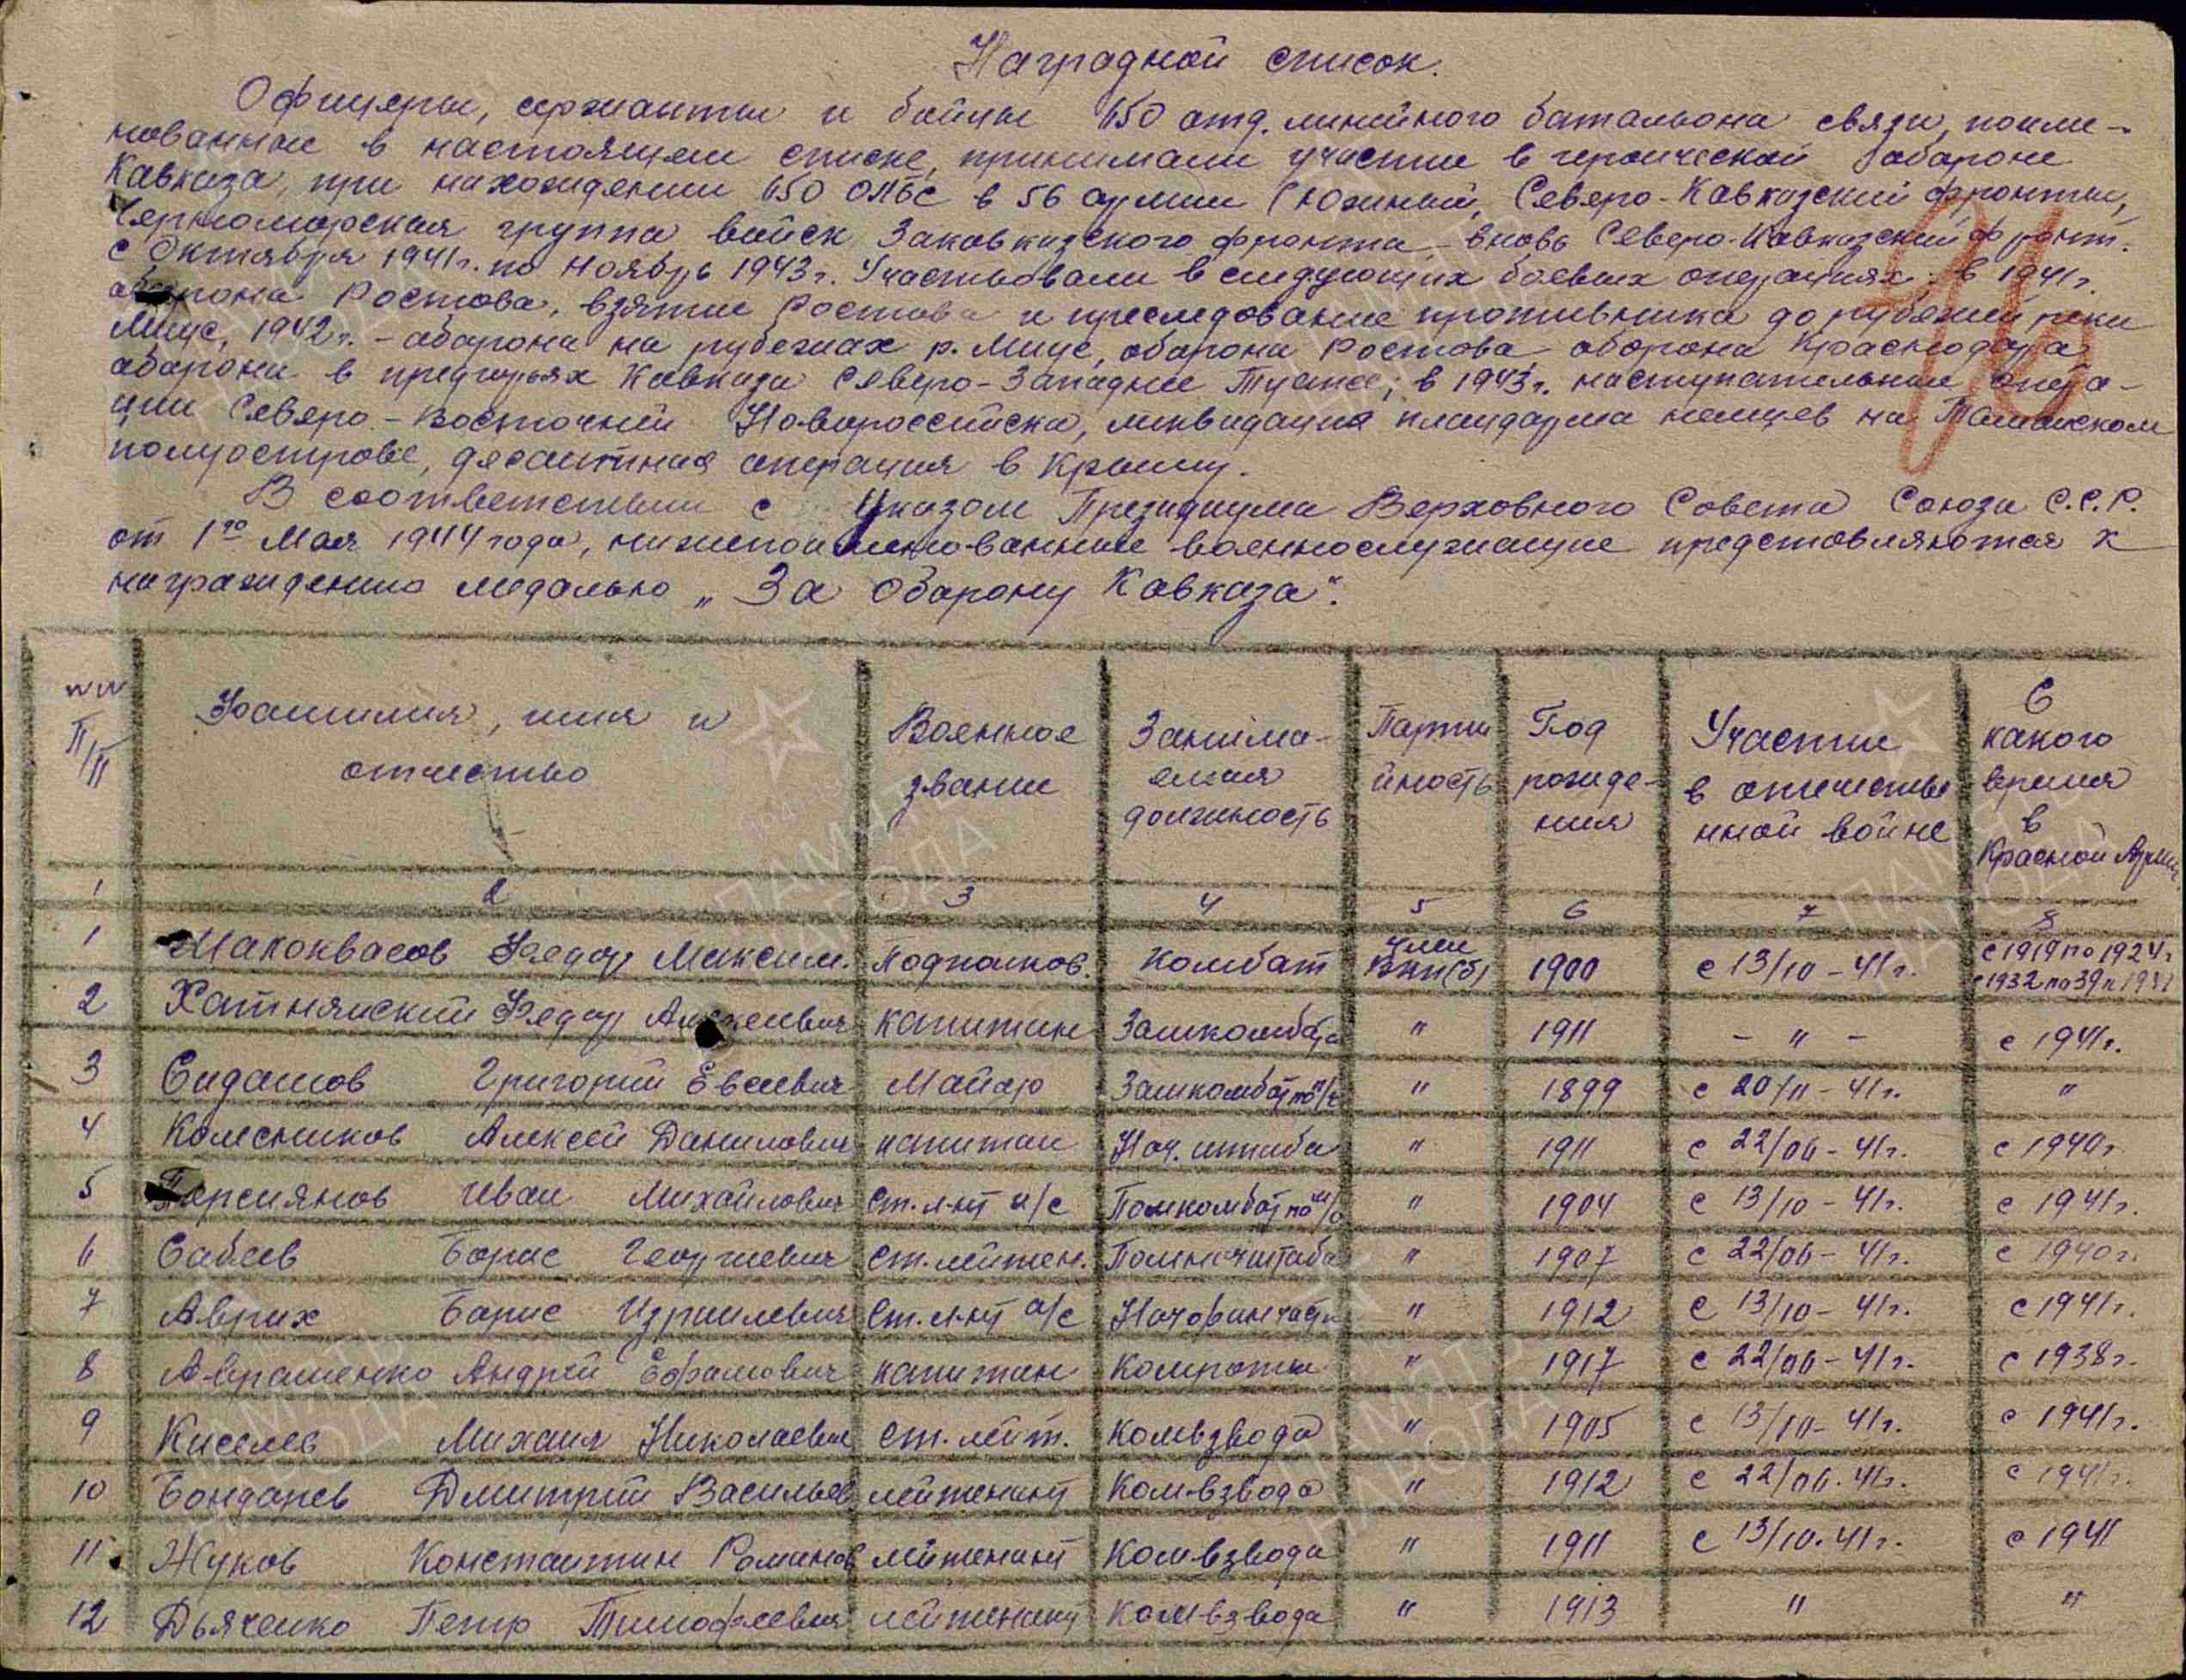 Наградной список.
Офицеры, сержанты и бойцы 650 отд. линейного батальона связи, поиме-
нованные в настоящем списке, принимали участие в героической обороне
Кавказа, при нахождении 650 ОЛБС в 56 армии (Южный, Северо-Кавказский фронты,
Черноморская группа войск Закавказского фронта, вновь Северо-Кавказский фронт.
с Октября 1941г. по Ноябрь 1943г. Участвовали в следующих боевых операциях: в 1941г.
оборона Ростова, взятие Ростова и преследование противника до рубежей реки
Миус, 1942г. - оборона на рубежах р. Миус, оборона Ростова оборона Краснодара
оборона в предгорьях Кавказа Северо-Западнее Туапсе; в 1943г. наступательные опера-
ции Северо-Восточней Новороссийска, ликвидация плацдарма немцев на Таманском
полуострове, десантная операция в Крыму.
В соответствии с Указом Президиума Верховного Совета Союза С.С.Р.
от 1го Мая 1944 года, нижепоименованные военнослужащие представляются к
награждению медалью „За Оборону Кавказа".
№№ П/П | Фамилия, имя и отчество | Военное звание | Занима-емая должность | Парти йность | Год рожде-ния | Участие в отечестве нной войне | С какого время в Красной Армии
1 2 3 4 5 6 7 8
1 Малоквасов Федор Максим. Подполков. Комбат член ВКП(б) 1900 с 13/10-41г. с 1919 по 1924г с 1932 по 39 и 1941
2 Хатнянский Федор капитан Замкомбата " 1911 - " - с 1941г.
3 Сидашов Григорий Евсеевич Майор Замкомбат по п/ч " 1899 с 20/11-41г. "
4 Колесников Алексей Данилович капитан Нач. штаба " 1911 с 22/06-41г. с 1940г.
5 Персиянов Иван Михайлович Ст. л-нт и/с Помкомбат по " 1904 с 13/10-41г. с 1941г.
6 Сабеев Борис Георгиевич Ст. лейтен. Помначштаба " 1907 с 22/06-41г. с 1940г.
7 Аврих Борис Израилевич Ст. л-нт а/с Начфинчасти " 1912 с 13/10-41г. с 1941г.
8 Авраменко Андрей Ефрамович капитан Комроты " 1917 с 22/06-41г. с 1938г.
9 Киселев Михаил Николаевич Ст. лейт. Комвзвода " 1905 с 13/10-41г. с 1941г.
10 Бондарев Дмитрий Васильев лейтенант Комвзвода " 1912 с 22/06.41г. с 1941г.
11 Жуков Константин Романов лейтенант Комвзвода " 1911 с 13/10.41г. с 1941
12 Дьяченко Петр Тимофеевич лейтенант Комвзвода " 1913 " "
ПАМЯТЬ НАРОДА